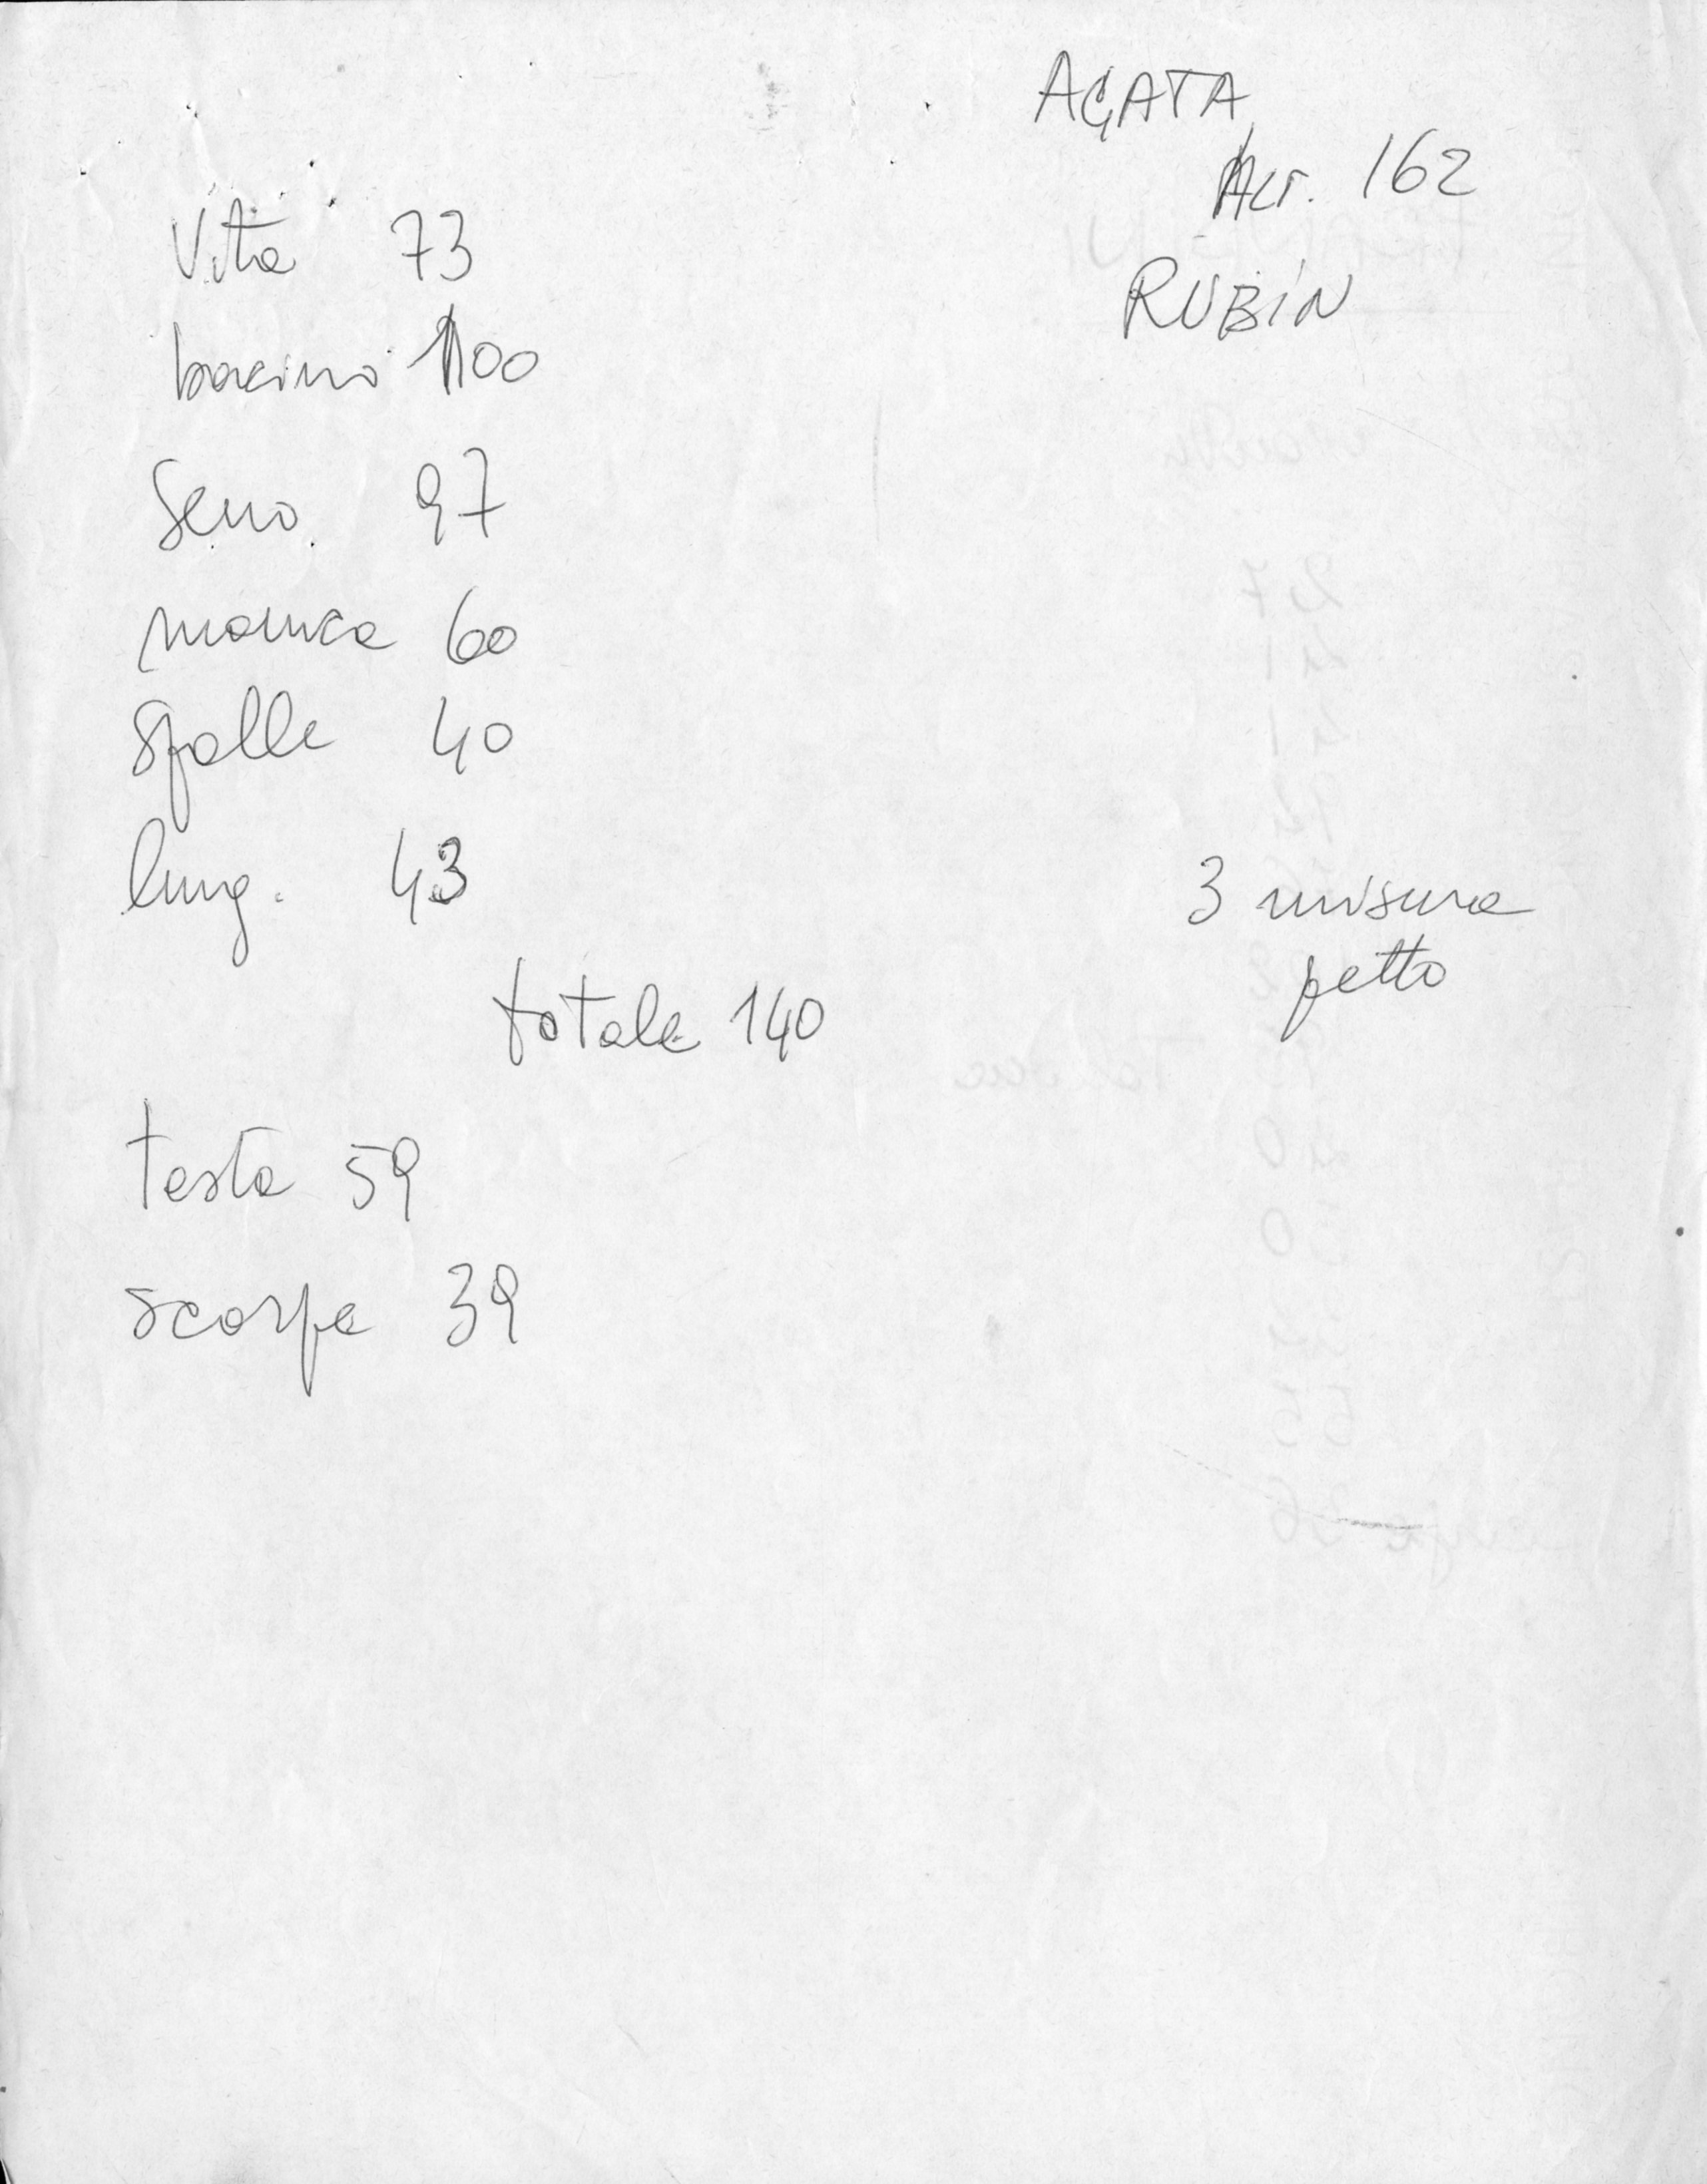 AGATA
Alt. 162
RUBIN
Vita 73
bacino 100
Seno 97
manica 60
Spalle 40
lung. 43
3 misura
petto
totale 140
testa 59
scarpe 39